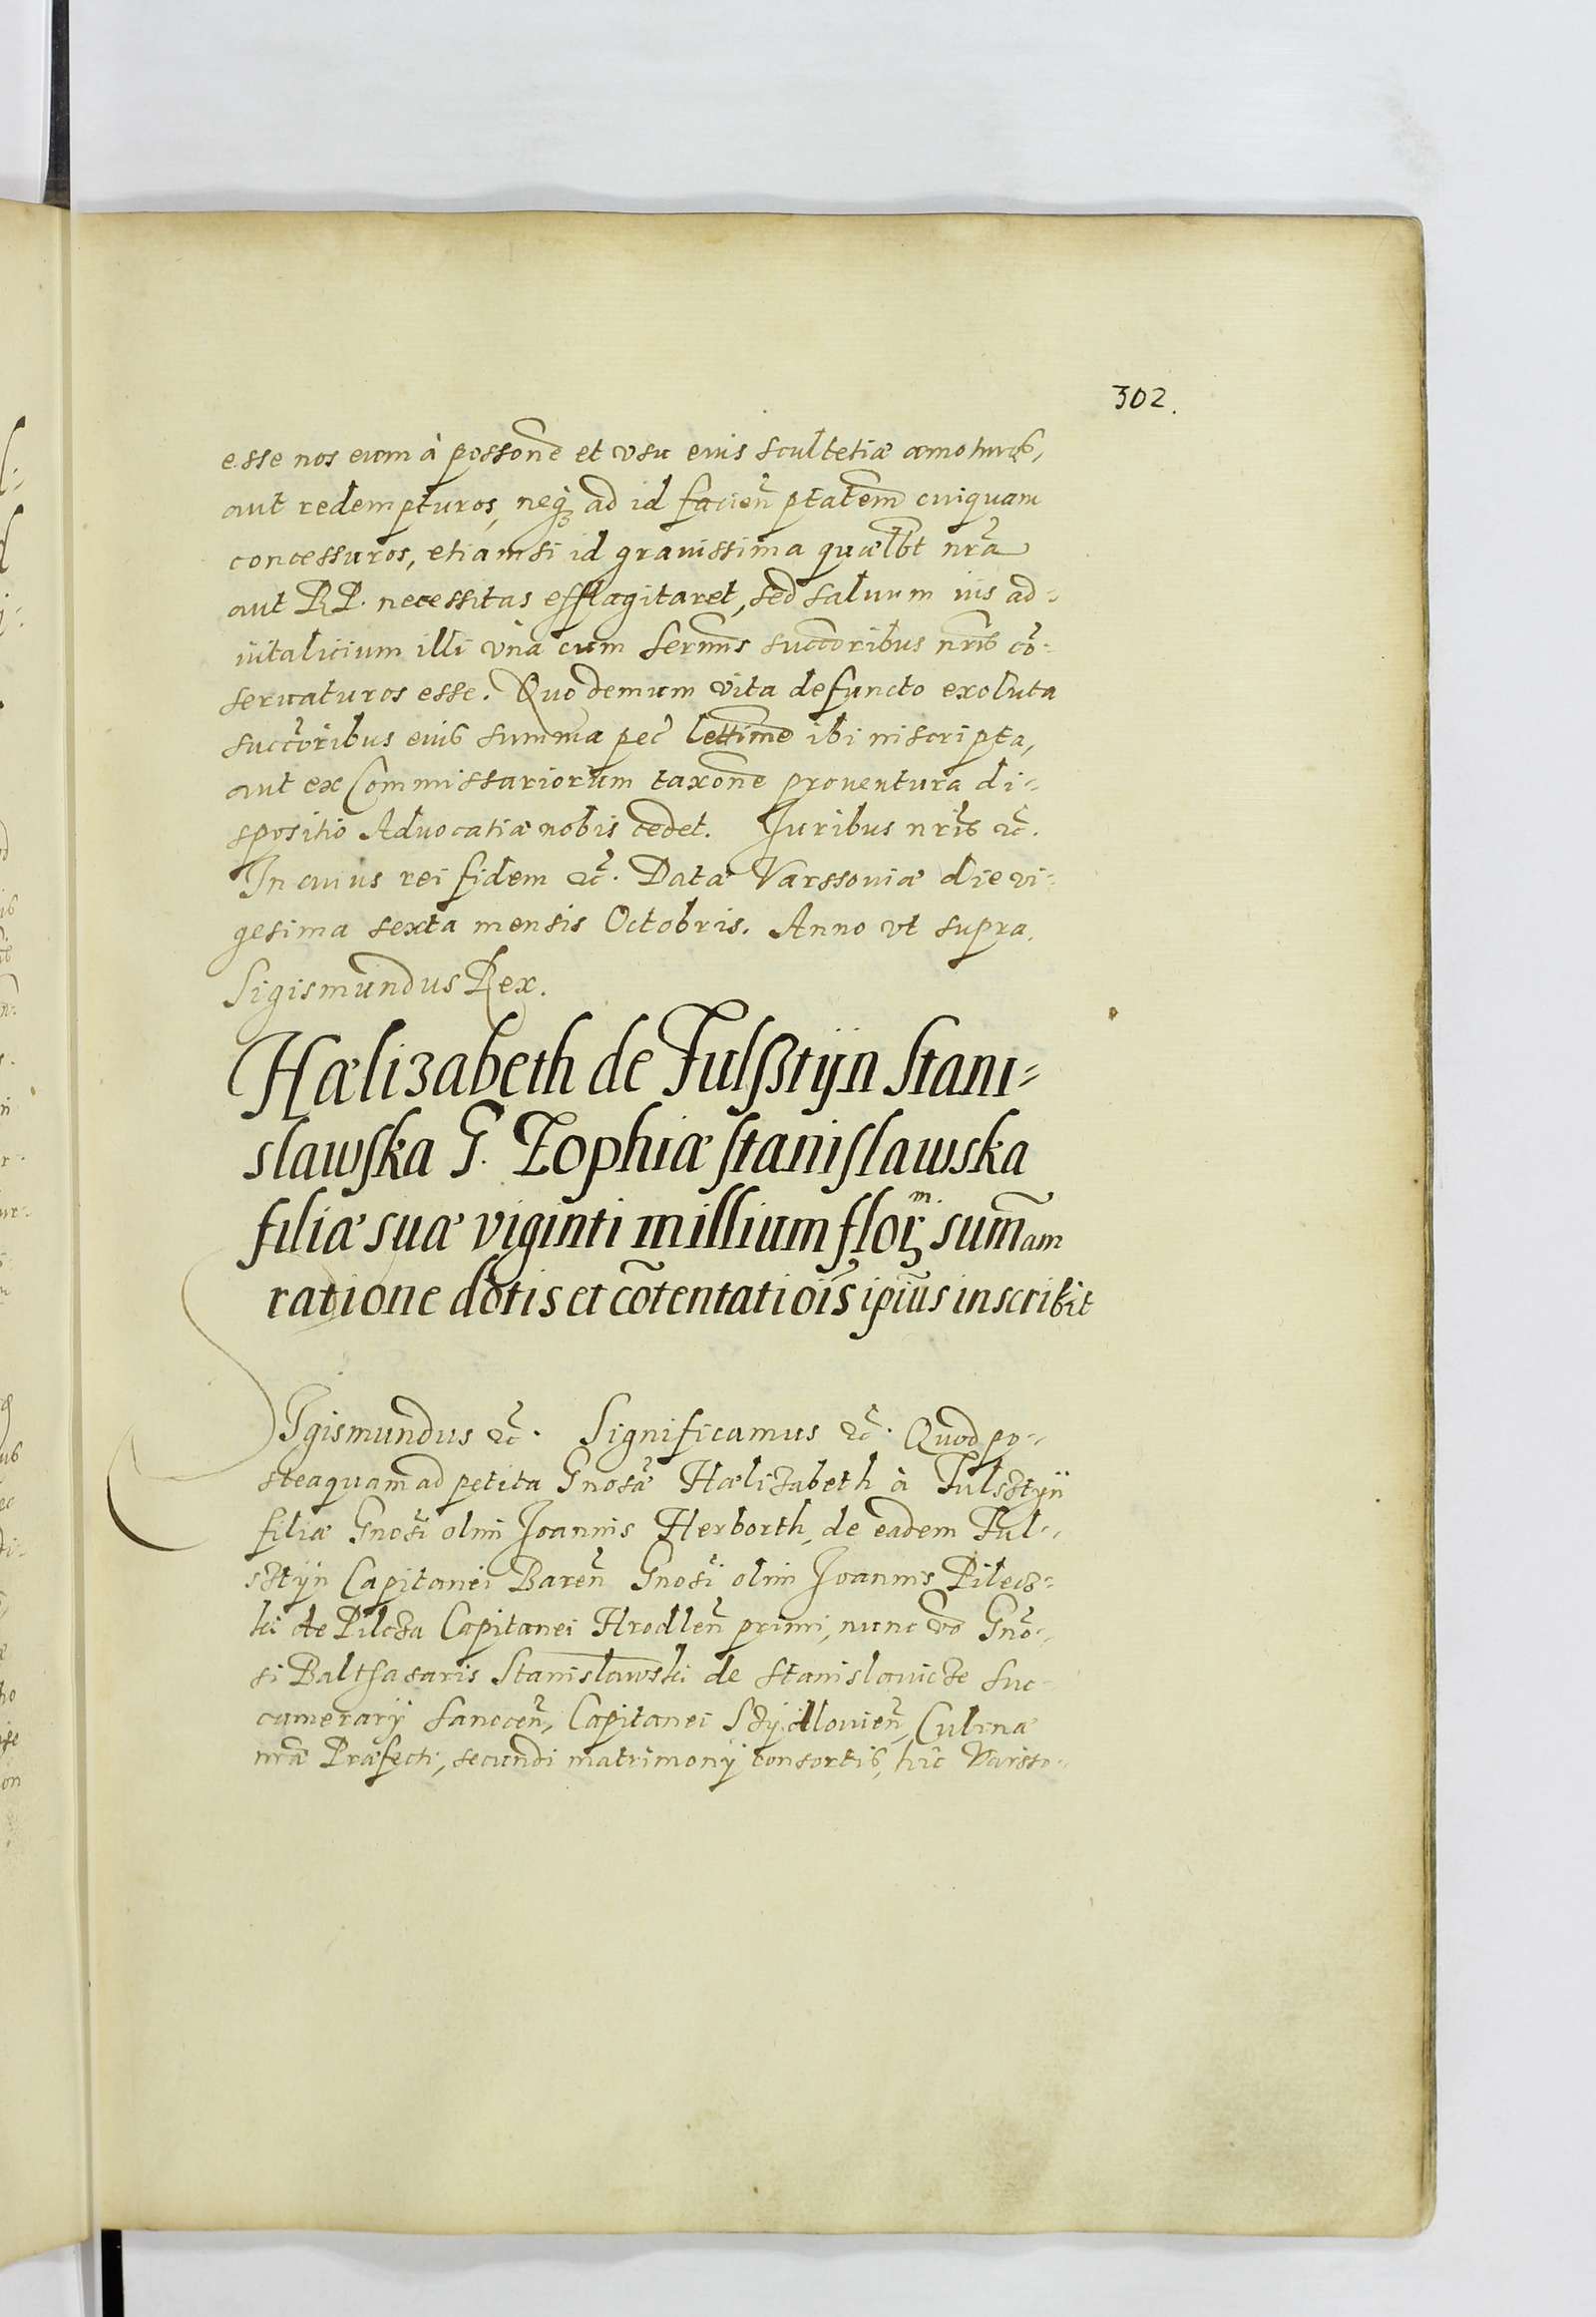 302.
esse nos eum à possone et vsu eius scultetiæ amoturos,
aut redempturos, neq₃ ad id facien̄ ptatem cuiquam
concessuros, etiamsi id grauissima quælbt nrã
aut RP. necessitas efflagitaret, sed saluum ius ad-
uitalicium illi vna cum sermis succoribus nris cõ-
seruaturos esse. Quo demum vita defuncto exoluta
succoribus eius summa pec̃ lettime ibi inscripta,
aut ex Commissariorum taxone prouentura di-
spositio Aduocatiæ nobis cedet. Iuribus nris &c̃.
In cuius rei fidem &c̃. Datæ Varssouiæ die vi-
gesima sexta mensis Octobris. Anno vt supra.
Sigismundus Rex.
Hælizabeth de Fulsztijn Stani-
slawska G. Zophiæ Stanislawska
filiæ suæ viginti millium florm. sum̃am
ratione dotis et cõtentatiois ipius inscribit
SIgismundus &c̃. Significamus &c̃. Quod po-
steaquam ad petita Gnosæ Hælizabeth à Fulsztijn
filiæ Gnosi olim Joannis Herborth, de eadem Ful-
sztijn Capitanei Baren̄ Gnosi olim Joannis Pilecz-
ki de Pilcza Capitanei Hrodlen̄ primi, nunc vo Gno-
si Balthasaris Stanislawski de Stanislauicze Suc-
camerarij Sanocen̄, Capitanei Szydlouien̄, Culinæ
nræ Præfecti, secundi matrimonij consortis, hic Varsso-